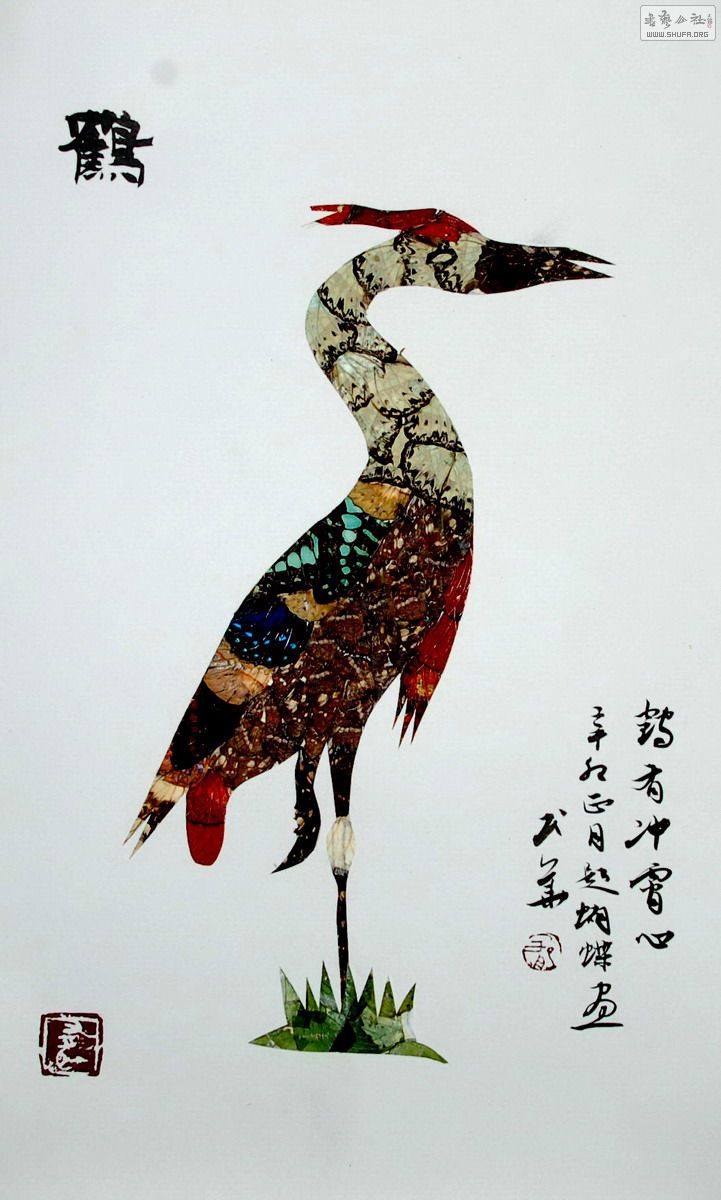 書藝公社
WWW.SHUFA.ORG
鶴
鶴有冲霄心
辛卯正月题蝴蝶画